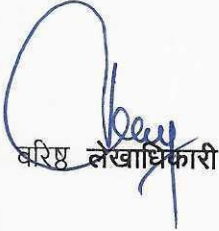 वरिष्ठ लेखाधिकारी